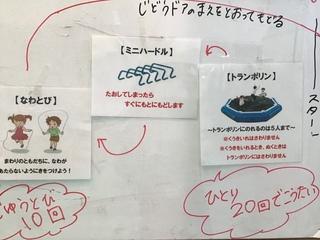 じどうドアのまえをとおってもどる
スター
【ミニハードル】
たおしてしまったら
すぐにもとにもどします
【トランポリン】
～トランポリンにのれるのは5人まで～
※くうきいれはさわりません
※くうきをいれるとき、ぬくときは
トランポリンにはさわりません
【なわとび】
まわりのともだちに、なわが
あたらないようにきをつけよう！
10回
ひとり
20回でこうたい